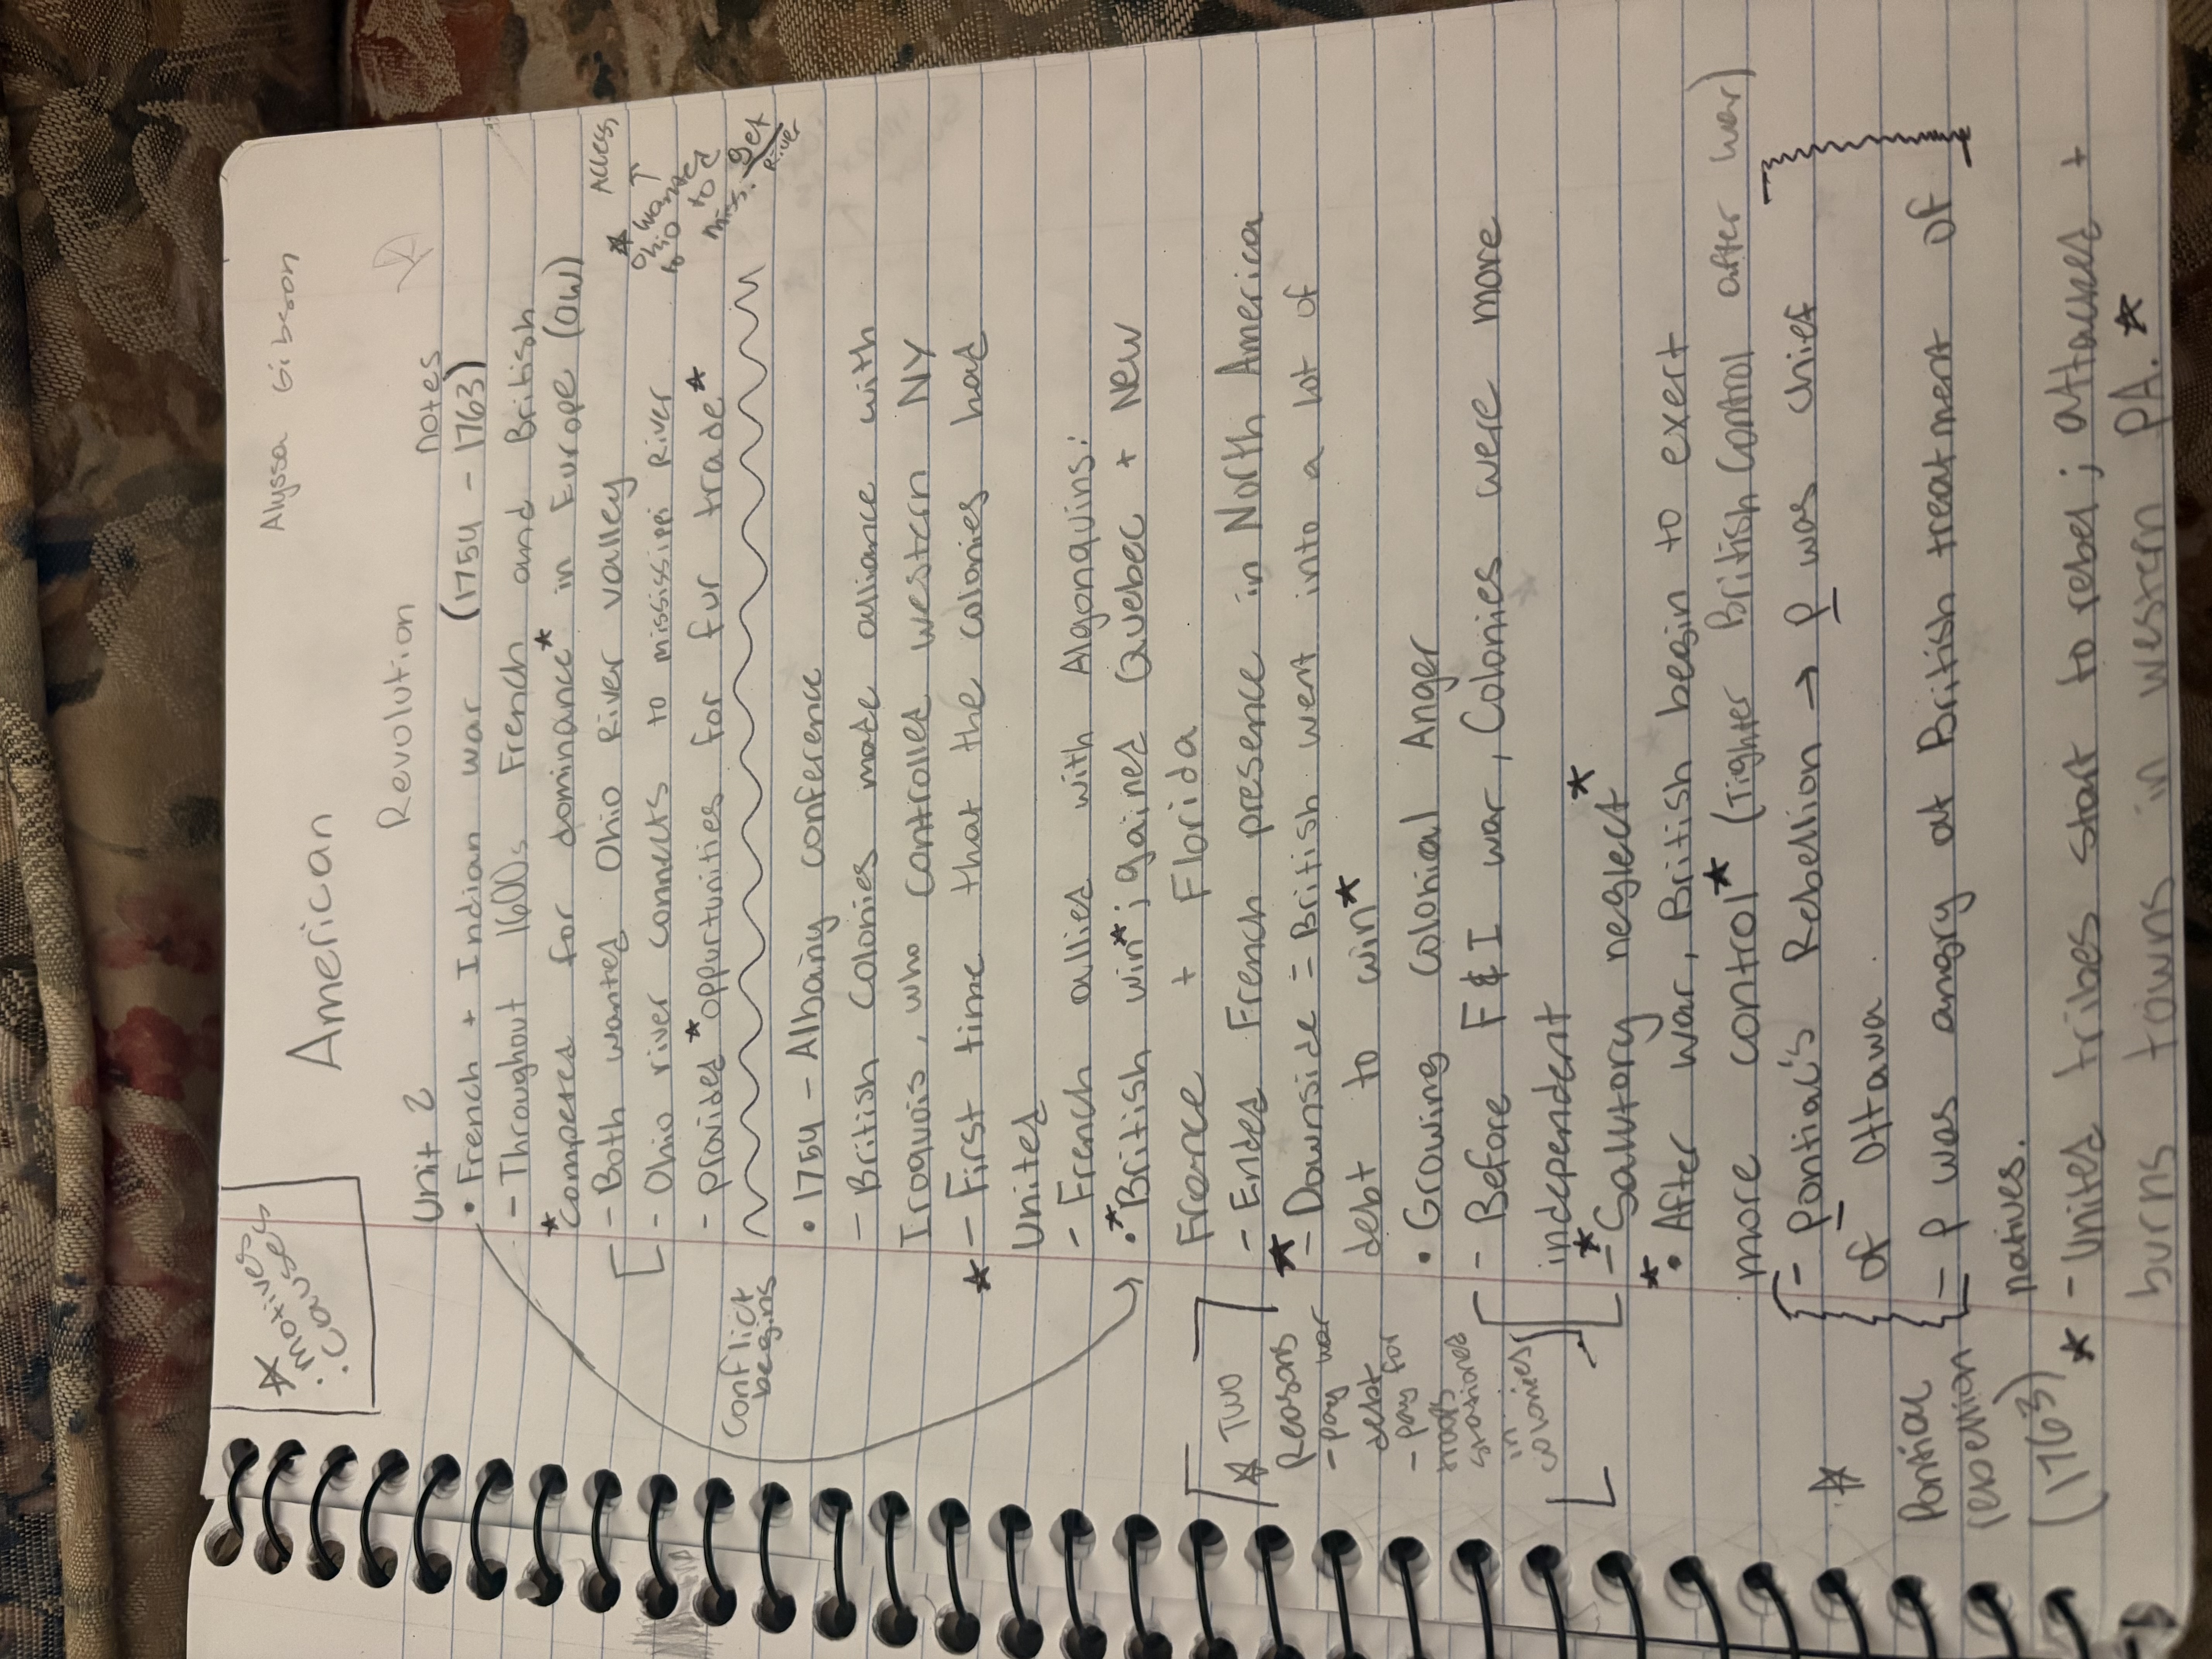 Alyssa Gibson
* motives
· causes
American
Revolution
Unit 2 notes
• French + Indian war (1754 - 1763)
- Throughout 1600s French and British
* Competed for dominance* in Europe (OW)
- Both wanted Ohio River valley
- Ohio river connects to mississippi River
- provided *oppurtunities for fur trade*
* Access
Ohio ↑
wanted
to get
to
miss. River
Conflict
begins
• 1754 - Albany conference
- British Colonies made alliance with
Iroquois, who controlled western NY
* - First time that the colonies had
United
- French allied with Algonquins:
•* British win*; gained Quebec + New
France + Florida
- Ended French presence in North America
* - Downside = British went into a lot of
debt to win*
• Growing Colonial Anger
- Before F & I war, Colonies were more
independent
* - Salutory neglect*
* • After war, British begin to exert
more control* (Tighter British Control after war)
* Two
Reasons
- pay war
debt
- pay for
troops
stationed
in
colonies
- Pontiac's Rebellion → P was chief
of Ottawa
- P was angry at British treatment of
natives.
* - United tribes start to rebel; attacked +
burns towns in western PA. *
*
Pontiac
rebellion
(1763)